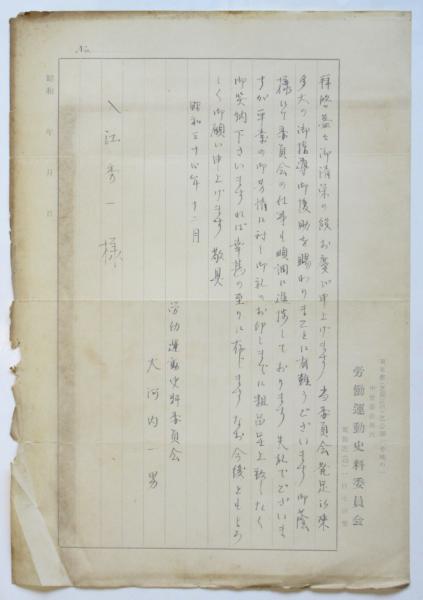 労働運動史料委員会
拝啓益々御清栄の段お慶び申上げます 当委員会発足以来
多大の御指導御援助を賜わりまことに有難うございます 御蔭
様にて委員会の仕事も順調に進捗しております 失礼でございま
すが平素の御芳情に対し御礼のお印しまでに粗品呈上致したく
御笑納下さいますれば幸甚の至りに存じます なお今後ともよろ
しく御願い申上げます 敬具
昭和三十 年十二月
労働運動史料委員会
大河内一男
入江秀一様
昭和 年 月 日
No.